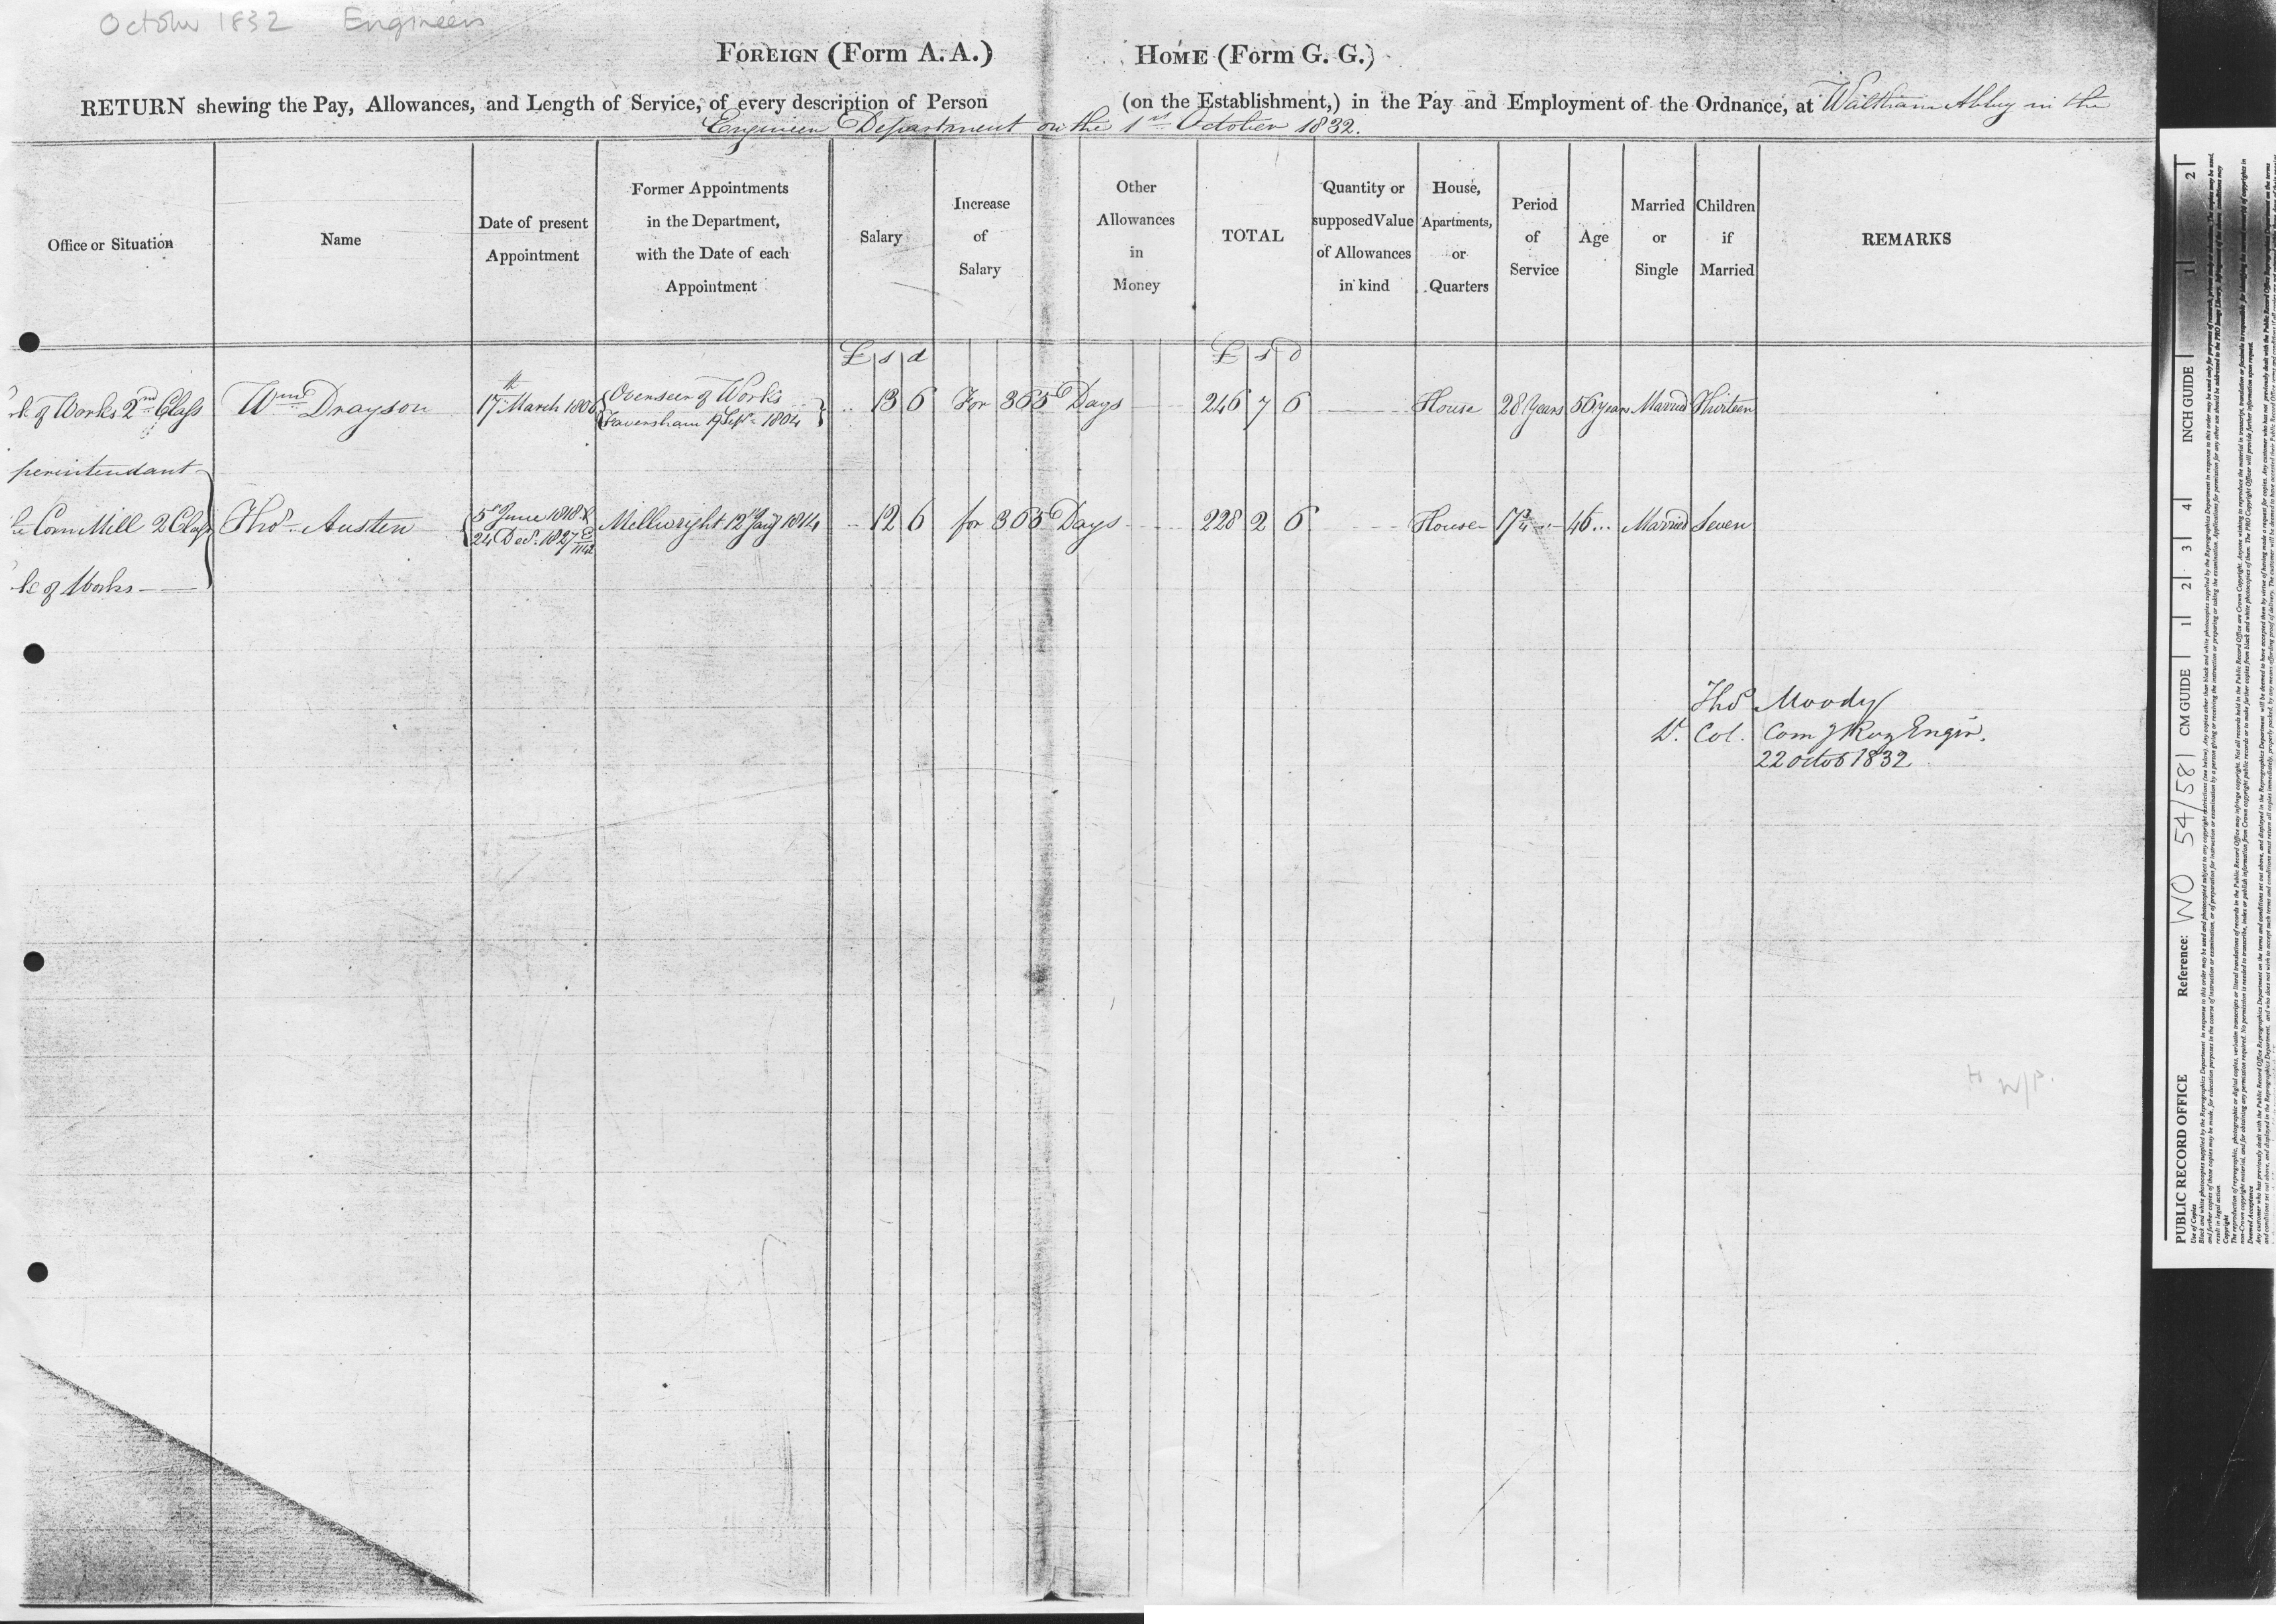 October 1832 Engineers
FOREIGN (Form A. A.) HOME (Form G. G.)
RETURN shewing the Pay, Allowances, and Length of Service, of every description of Person (on the Establishment,) in the Pay and Employment of the Ordnance, at Waltham Abbey in the
Engineer Department on the 1st October 1832.
Office or Situation
Name
Date of present
Appointment
Former Appointments
in the Department,
with the Date of each
Appointment
Salary
Increase
of
Salary
Other
Allowances
in
Money
TOTAL
Quantity or
supposed Value
of Allowances
in kind
House,
Apartments,
or
Quarters
Period
of
Service
Age
Married
or
Single
Children
if
Married
REMARKS
£ s d £ s d
rk of Works 2nd Class Wm Drayson 17th March 1806 Overseer of Works 13 6 For 365 Days 246 7 6 House 28 Years 56 years Married Thirteen
Faversham 19 Sepr 1804
perintendant
Corn Mill 2 Class Thos Austen 5th June 1818 & Millwright 12 Jany 1814 12 6 for 365 Days 228 2 6 House 17 3/4 46 Married Seven
24 Decr 1827
rk of Works
Thos Moody
Lt Col. Comg Roy Engrs.
22 Octob 1832
to W/P.
PUBLIC RECORD OFFICE Reference: WO 54/581 CM GUIDE 1 2 3 4 INCH GUIDE 1 2
Use of Copies
Copyright
Deemed Acceptance